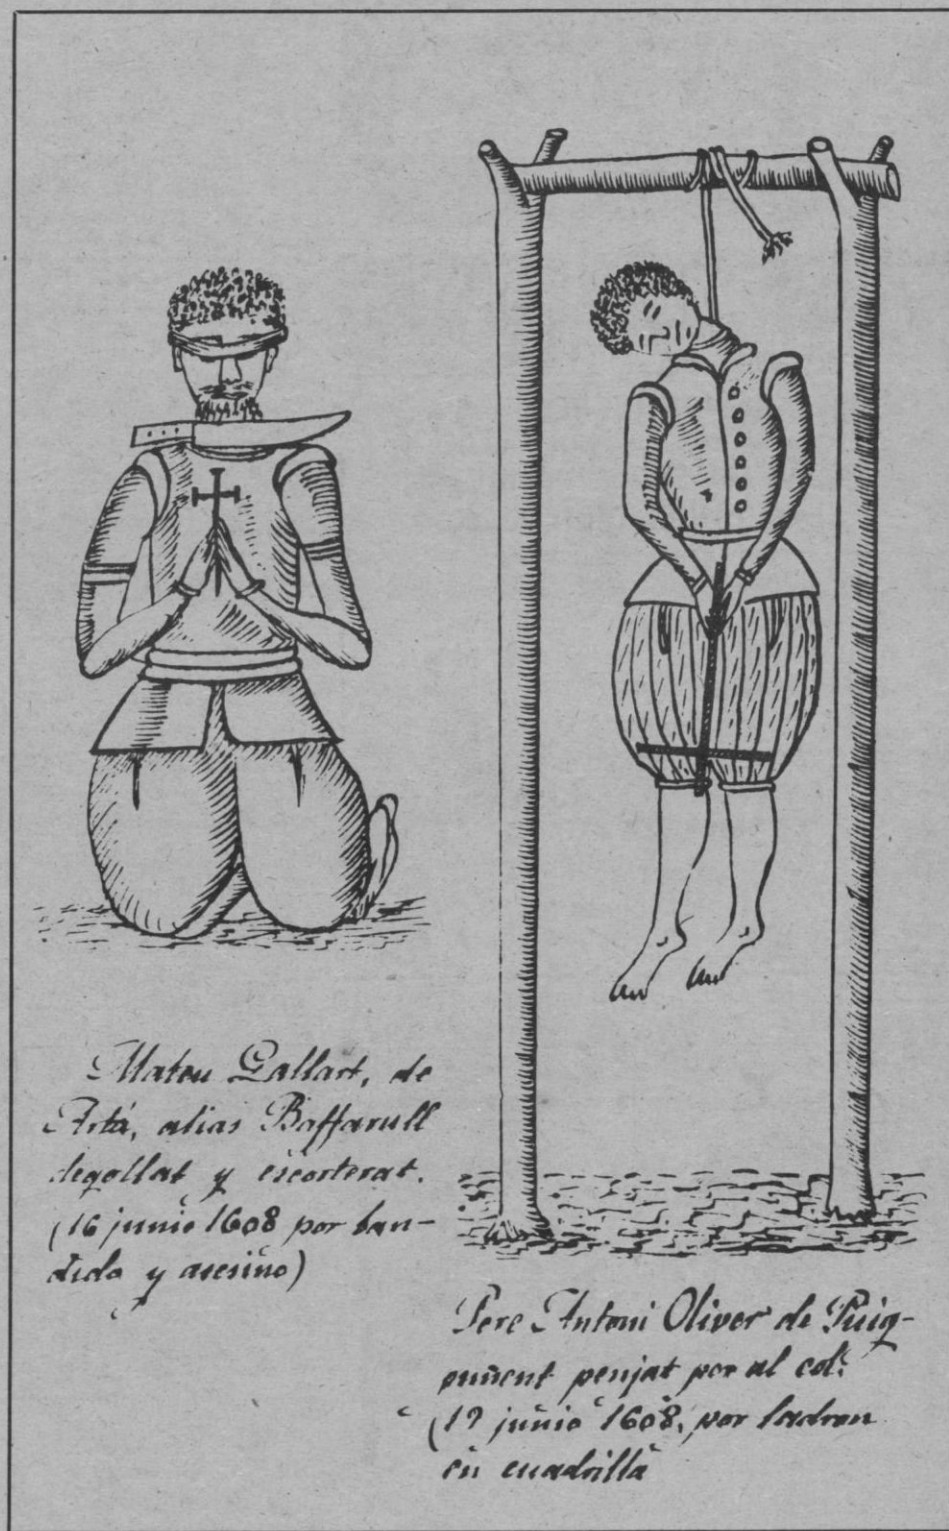 Mateu Gallart, de
Artá, alias Boffarull
degollat y escorterat.
(16 junio 1608 por ban-
dido y asesino)
Pere Antoni Oliver de Puig-
puñent penjat per al col.
(17 junio 1608, por ladron
en cuadrilla